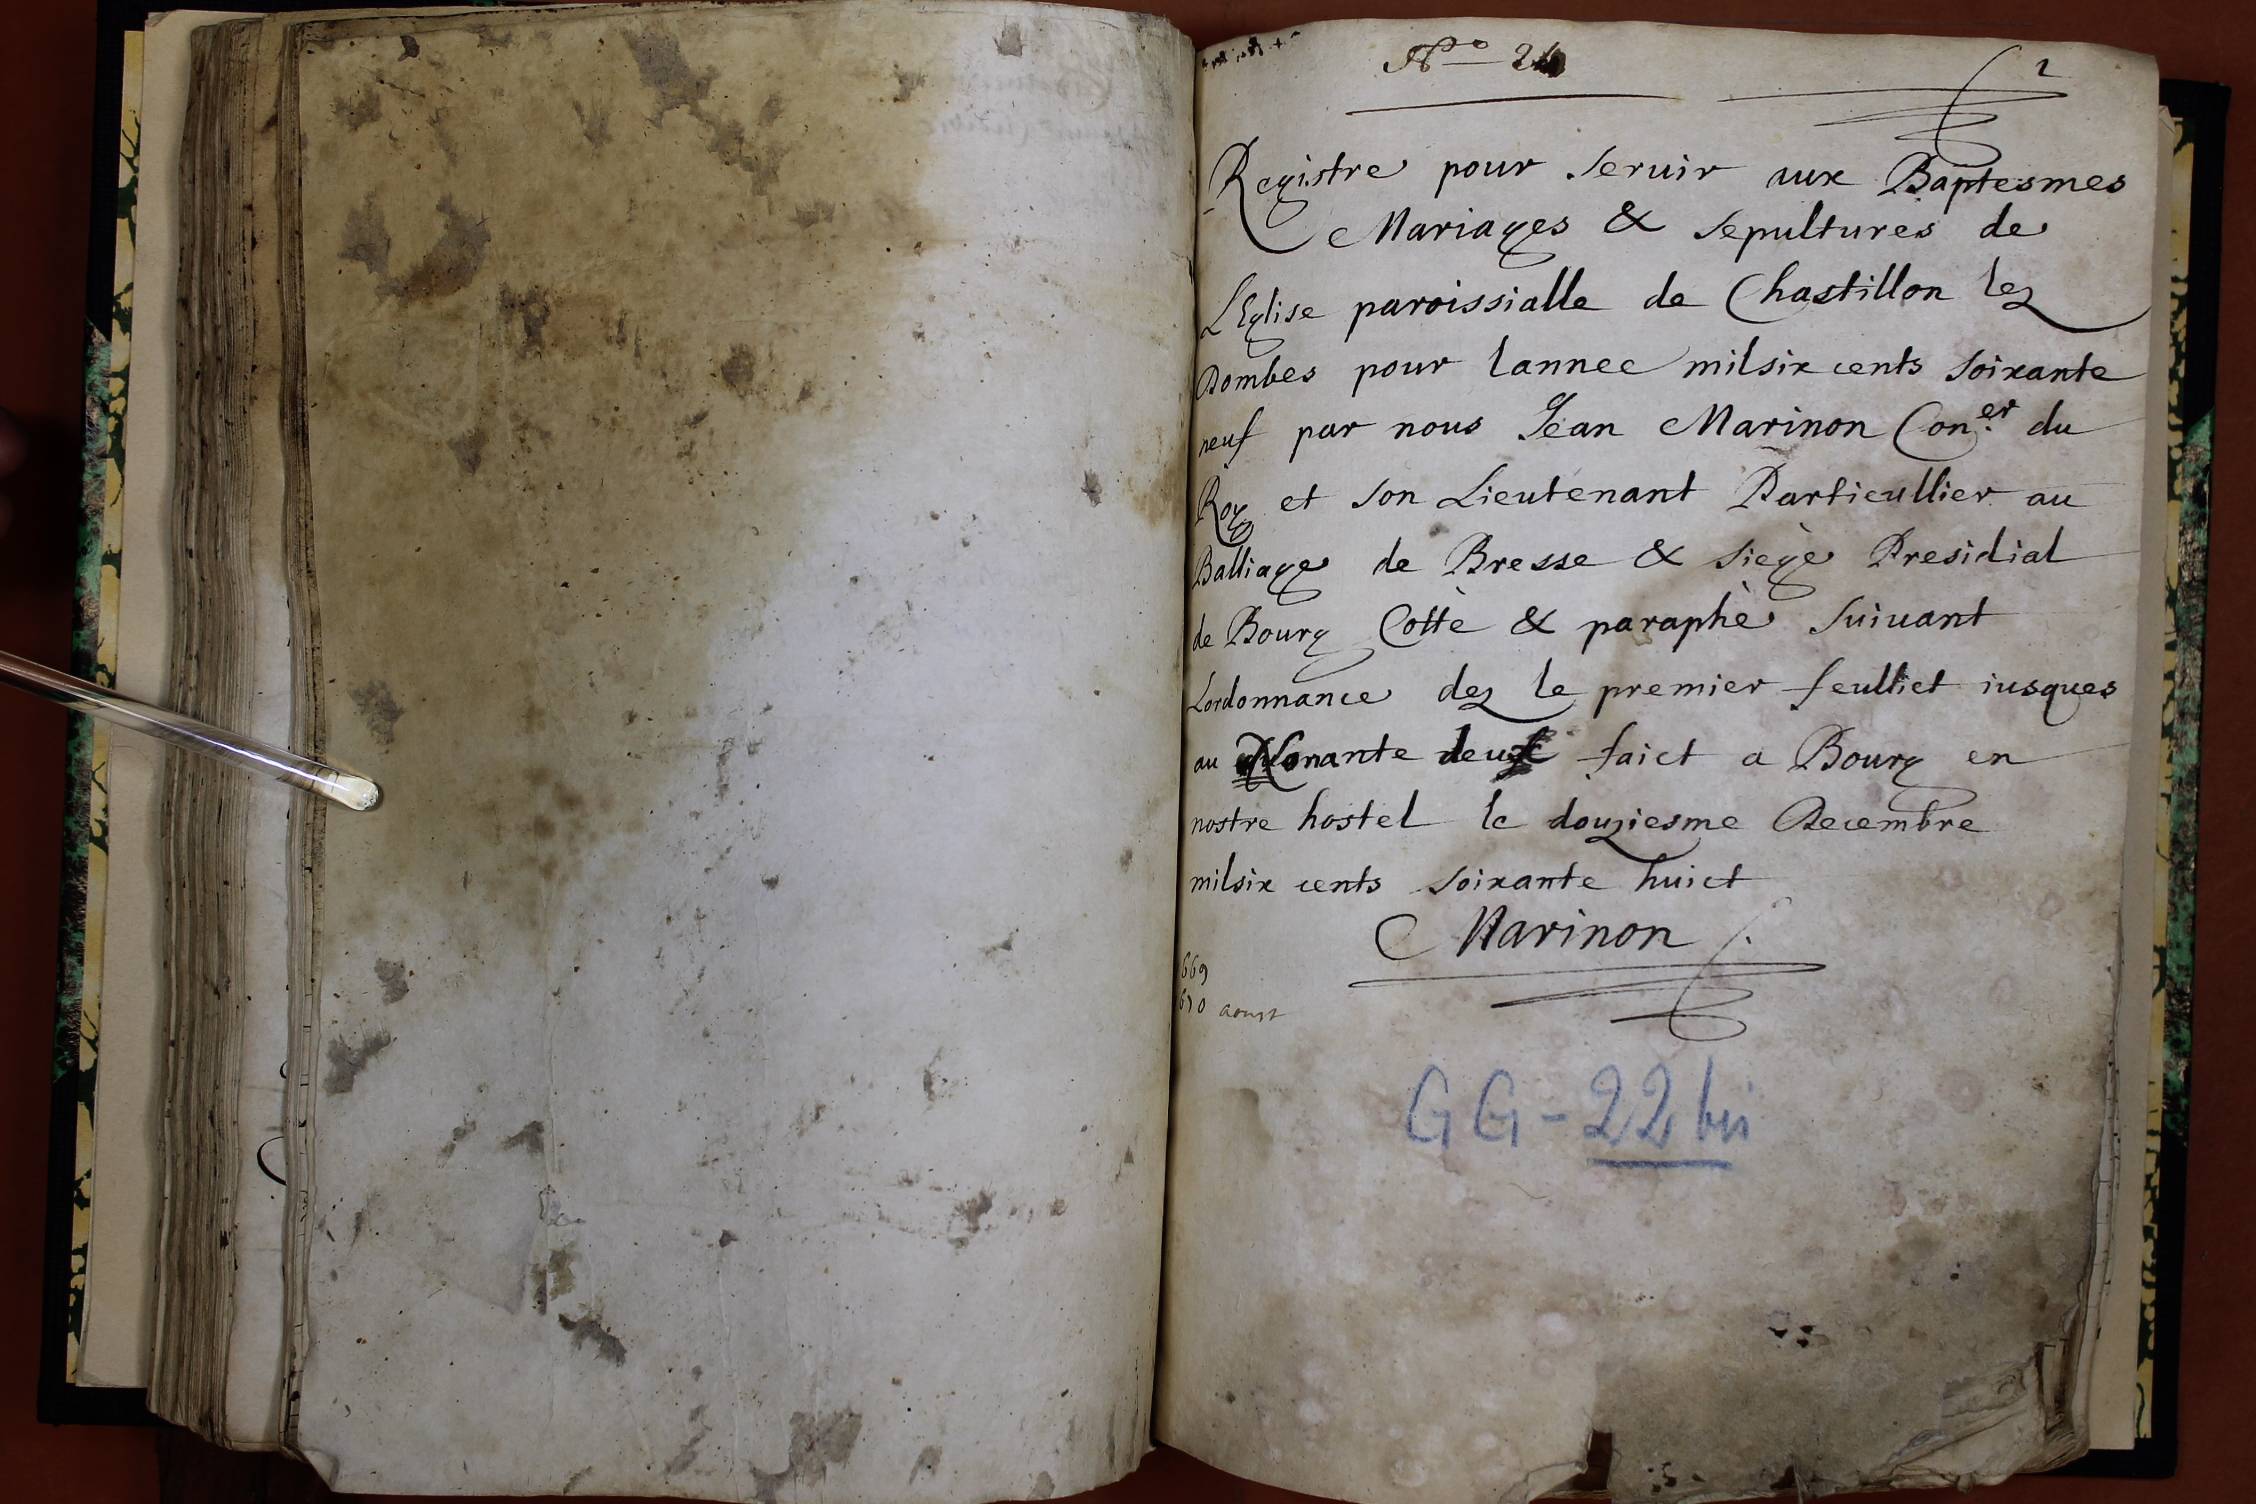 No 24
1
Registre pour servir aux Baptesmes
Mariages & sepultures de
LEglise paroissialle de Chastillon lez
Dombes pour lannee milsix cents soixante
neuf par nous Jean Marinon Con.er du
Roy et son Lieutenant Particullier au
Balliage de Bresse & siege Presidial
de Bourg Cottè & paraphè suivant
Lordonnance dez le premier feulliet iusques
au Nonante deux faict a Bourg en
nostre hostel le douziesme Decembre
milsix cents soixante huict
Marinon
669
670 aoust
GG-22 bis